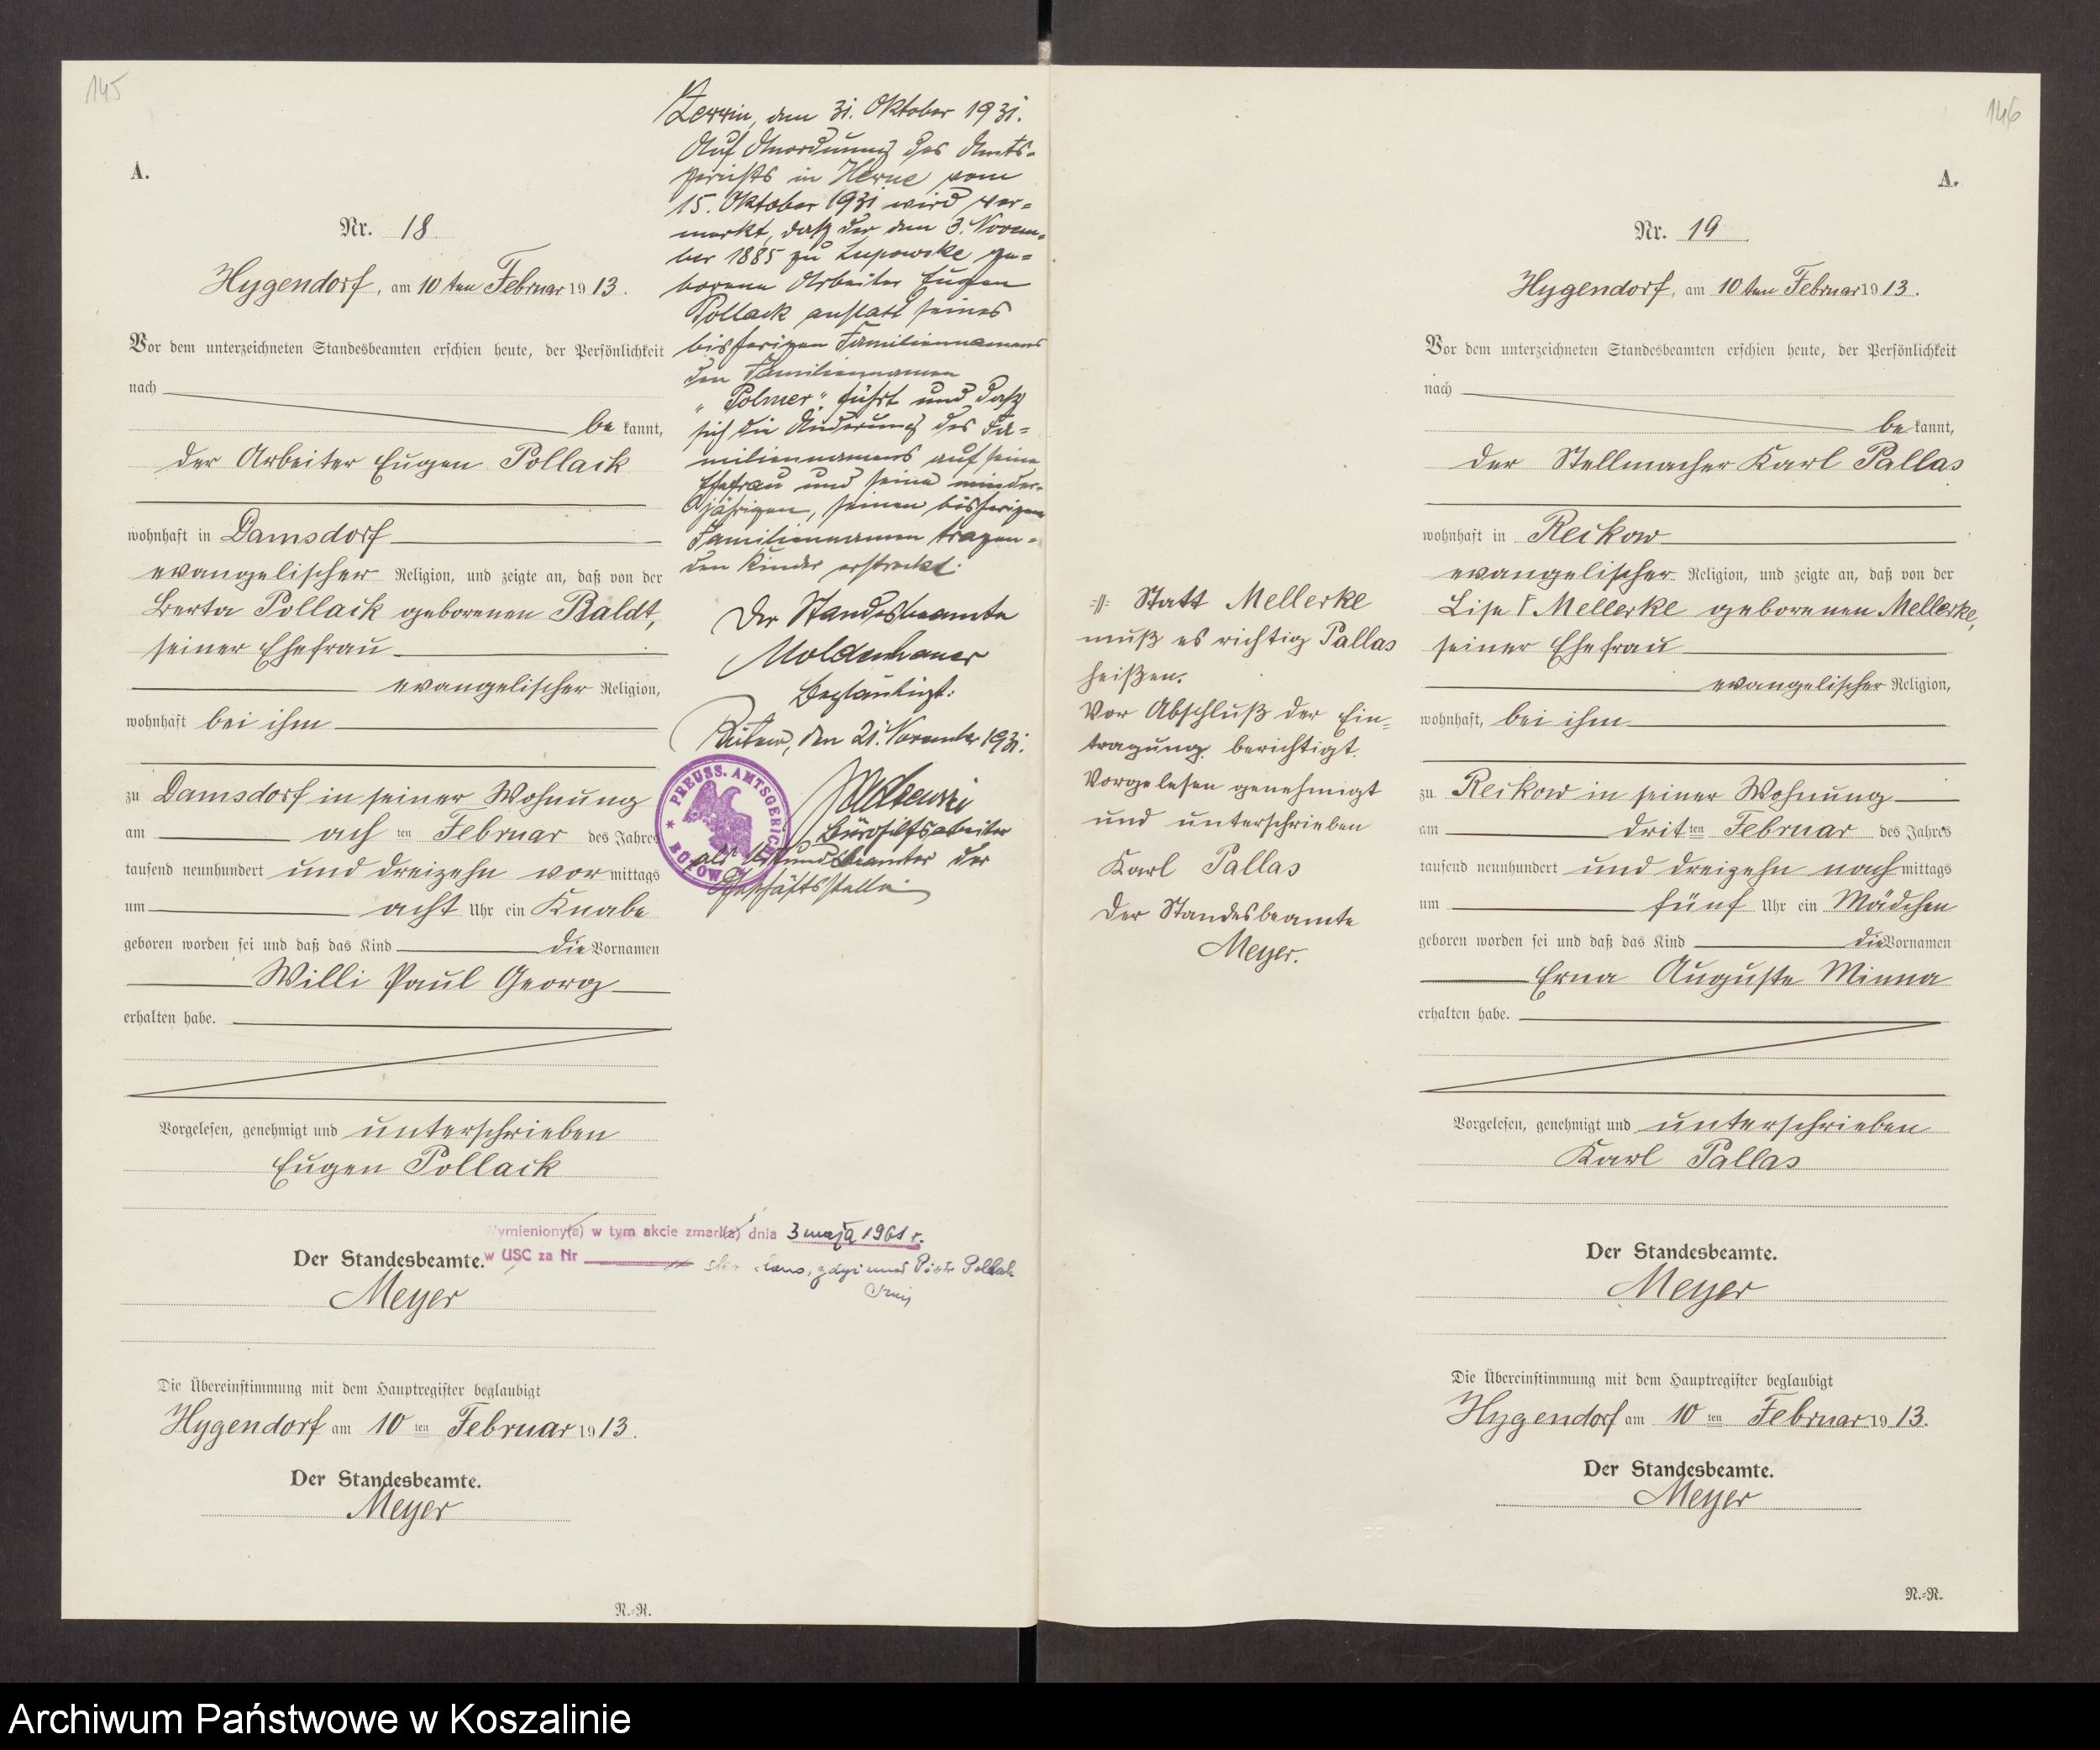 145
A.
Nr. 18
Hygendorf, am 10ten Februar 1913.
Vor dem unterzeichneten Standesbeamten erschien heute, der Persönlichkeit
nach
bekannt,
der Arbeiter Eugen Pollack
wohnhaft in Damsdorf
evangelischer Religion, und zeigte an, daß von der
Berta Pollack geborenen Baldt,
seiner Ehefrau
evangelischer Religion,
wohnhaft bei ihm
zu Damsdorf in seiner Wohnung
am ach ten Februar des Jahres
tausend neunhundert und dreizehn vormittags
um acht Uhr ein Knabe
geboren worden sei und daß das Kind die Vornamen
Willi Paul Georg
erhalten habe.
Vorgelesen, genehmigt und unterschrieben
Eugen Pollack
Der Standesbeamte.
Meyer
Die Übereinstimmung mit dem Hauptregister beglaubigt
Hygendorf am 10 ten Februar 1913.
Der Standesbeamte.
Meyer
N.-R.
Zerrin, den 31. Oktober 1931.
Auf Anordnung des Amts-
gerichts in Herne vom
15. Oktober 1931 wird ver-
merkt, daß der am 3. Novem-
ber 1885 zu Lupowske ge-
borene Arbeiter Eugen
Pollack anstatt seines
bisherigen Familiennamens
den Familiennamen
„Polmer“ führt und daß
sich die Änderung des Fa-
miliennamens auf seine
Ehefrau und seine minder-
jährigen, seinen bisherigen
Familiennamen tragen-
den Kinder erstreckt.
Der Standesbeamte
Moldenhauer
Beglaubigt:
Bütow, den 21. November 1931.
PREUSS. AMTSGERICHT
* BÜTOW
Bürohilfsarbeiter
als Urkundsbeamter der
Geschäftsstelle
Wymieniony(a) w tym akcie zmarł(a) dnia 3 maja 1961 r.
w USC za Nr
146
A.
Nr. 19
Hygendorf, am 10ten Februar 1913.
Vor dem unterzeichneten Standesbeamten erschien heute, der Persönlichkeit
nach
bekannt,
der Stellmacher Karl Pallas
wohnhaft in Reckow
evangelischer Religion, und zeigte an, daß von der
Lise Mellerke geborenen Mellerke,
seiner Ehefrau
evangelischer Religion,
wohnhaft, bei ihm
zu Reckow in seiner Wohnung
am drit ten Februar des Jahres
tausend neunhundert und dreizehn nachmittags
um fünf Uhr ein Mädchen
geboren worden sei und daß das Kind die Vornamen
Erna Auguste Minna
erhalten habe.
Vorgelesen, genehmigt und unterschrieben
Karl Pallas
Der Standesbeamte.
Meyer
Die Übereinstimmung mit dem Hauptregister beglaubigt
Hygendorf am 10 ten Februar 1913.
Der Standesbeamte.
Meyer
N.-R.
Statt Mellerke
muß es richtig Pallas
heißen.
Vor Abschluß der Ein-
tragung berichtigt.
Vorgelesen genehmigt
und unterschrieben
Karl Pallas
Der Standesbeamte
Meyer.
Archiwum Państwowe w Koszalinie